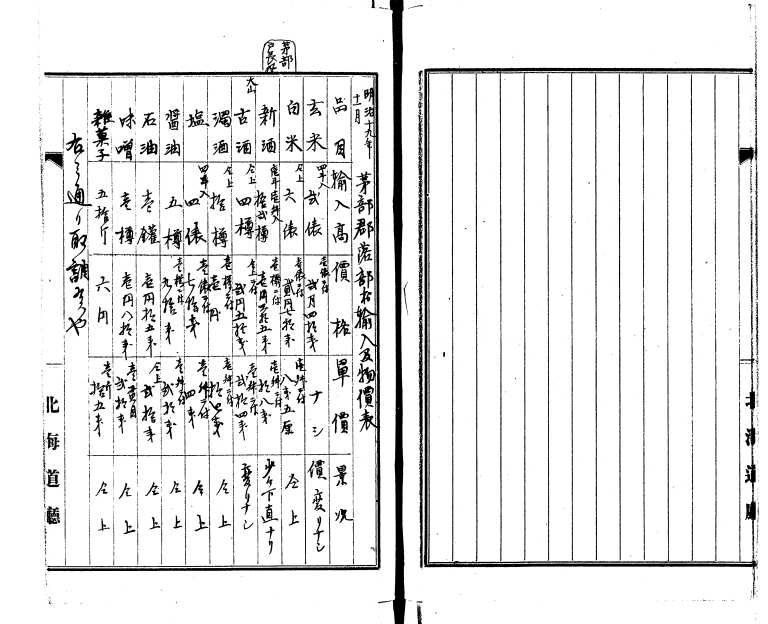 茅部
戸長役
明治十九年
十一月
茅部郡落部村輸入及物價表
品目 輸入高 價格 單價 景況
玄米 四斗入 弐俵 壱俵ニ付 弐円四拾銭 ナシ 價変リナシ
白米 仝上 六俵 壱俵ニ付 弐円七拾銭 壱升ニ付 八銭五厘 仝上
新酒 拾弐樽 壱樽ニ付 壱升ニ付 拾八銭 少々下直ナリ
古酒 仝上 四樽 仝上ニ付 弐円五拾銭 壱升ニ付 弐拾四銭 変リナシ
大山
濁酒 仝上 拾樽 壱樽ニ付 壱円 壱升ニ付 仝上
塩 四斗入 四俵 壱俵ニ付 七拾銭 壱升ニ付 四銭 仝上
醤油 五樽 壱樽ニ付 九拾銭 壱升ニ付 弐拾銭 仝上
石油 壱鑵 壱円拾五銭 仝上 弐拾銭 仝上
味噌 壱樽 壱円八拾銭 壱貫目 弐拾銭 仝上
雜菓子 五拾斤 六円 壱斤 拾五銭 仝上
右之通り取調候也
北海道廳
北海道廳